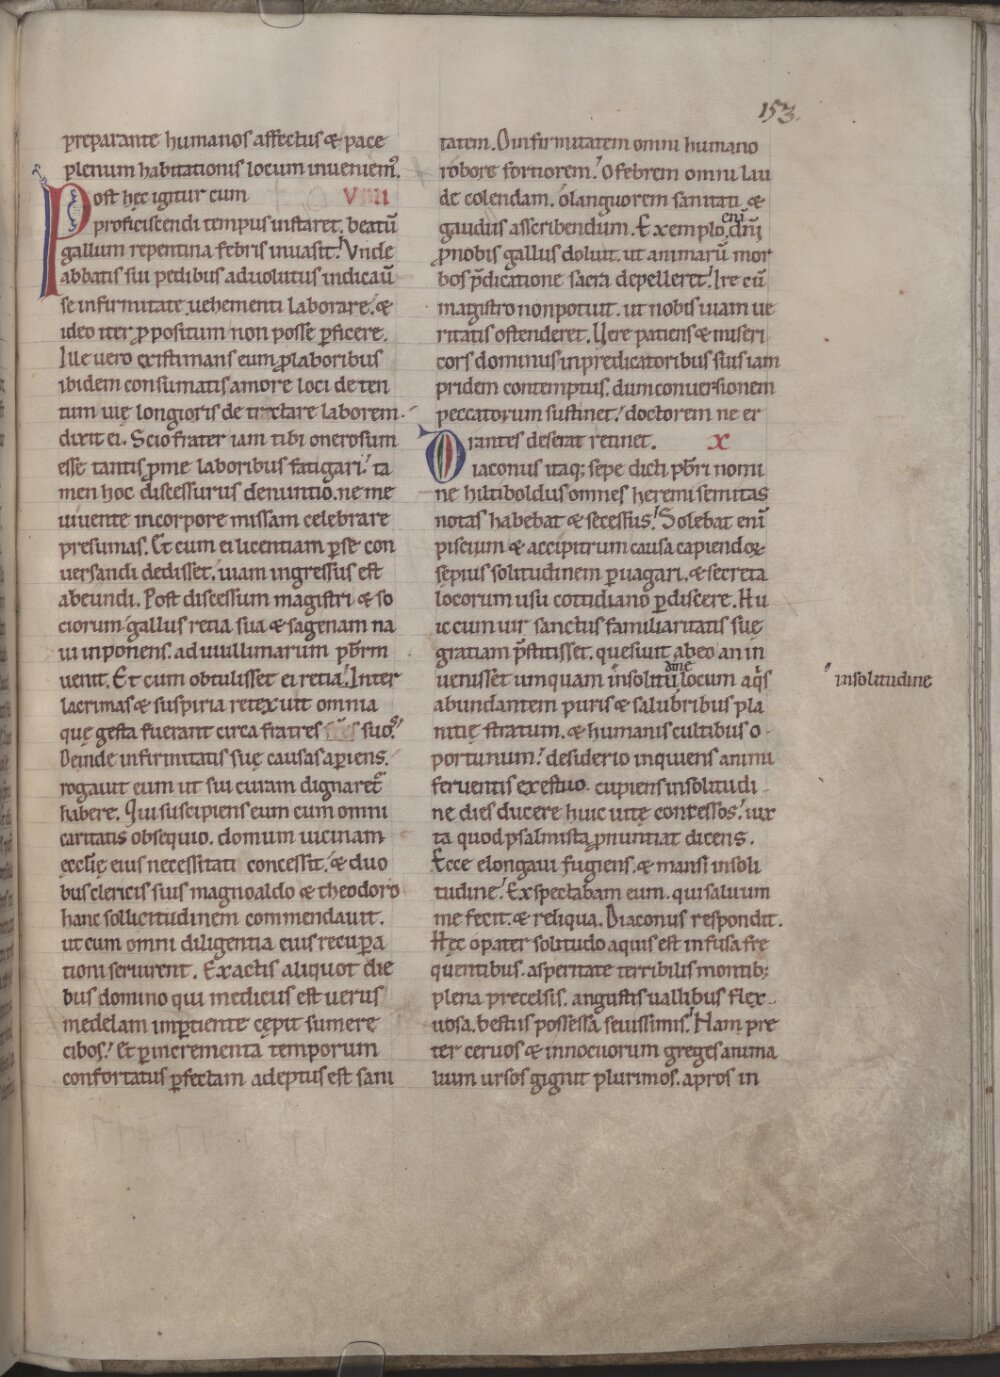 153.
preparante humanos affectus & pace
plenum habitationis locum inueniem᷒.
Post hęc igitur cum VIIII
proficiscendi tempus instaret. beatū
gallum repentina febris inuasit. Vnde
abbatis sui pedibus aduolutus indicauı̄
se infirmitate uehementi laborare. &
ideo iter ꝓpositum non posse ꝑficere.
Ille uero existimans eum ꝓ laboribus
ibidem consumatis amore loci deten
tum uię longioris detrectare laborem.
dixit ei. Scio frater iam tibi onerosum
esse tantis ꝓ me laboribus fatigari. ta
men hoc discessurus denuntio. ne me
uiuente in corpore missam celebrare
presumas. Et cum ei licentiam ꝑ se con
uersandi dedisset. uiam ingressus est
abeundi. Post discessum magistri & so
ciorum gallus retia sua & sagenam na
ui inponens. ad uuillimarum pb̄rm
uenit. Et cum obtulisset ei retia. Inter
lacrimas & suspiria retexuit omnia
quę gesta fuerant circa fratres suos.
Deinde infirmitatis suę causas aꝑiens.
rogauit eum ut sui curam dignaret᷑
habere. Qui suscipiens eum cum omni
caritatis obsequio. domum uicinam
ęcclı̄ę eius necessitati concessit. & duo
bus clericis suis magnoaldo & theodoro
hanc sollicitudinem commendauit.
ut cum omni diligentia eius recuꝑa
tioni seruirent. Exactis aliquot die
bus domino qui medicus est uerus
medelam imꝑtiente cępit sumere
cibos. Et ꝑ incrementa temporum
confortatus ꝑfectam adeptus est sani
tatem. O infirmitatem omni humano
robore fortiorem. O febrem omni lau
de colendam. o languorem sanitati &
gaudiis asscribendum. Exemplo enī dn̄i
ꝓ nobis gallus doluit. ut animarū mor
bos p̄dicatione sacra depelleret. Ire cū
magistro non potuit. ut nobis uiam ue
ritatis ostenderet. Vere patiens & miseri
cors dominus in predicatoribus suis iam
pridem contemptus. dum conuersionem
peccatorum sustinet. doctorem ne er
rantes deserat retinet. X
Diaconus itaq; sepe dicti pb̄ri nomi
ne hiltiboldus omnes heremi semitas
notas habebat & secessus. Solebat enī
piscium & accipitrum causa capiendoꝝ
sepius solitudinem ꝑuagari. & secreta
locorum usu cottidiano ꝑdiscere. Hu
ic cum uir sanctus familiaritatis suę
gratiam p̄stitisset. quesiuit ab eo an in
uenisset umquam in solitudine locum aq̇s
abundantem puris & salubribus pla
nitię stratum. & humanis cultibus o-
portunum. desiderio inquiens animi
feruentis exestuo. cupiens in solitudi-
ne dies ducere huic uitę concessos. iux
ta quod psalmista ꝓnuntiat dicens.
Ecce elongaui fugiens. & mansi in soli
tudine. Exspectabam eum. qui saluum
me fecit. & reliqua. Diaconus respondit.
Hęc o pater solitudo aquis est infusa fre
quentibus. asperitate terribilis montib;
plena precelsis. angustis uallibus flex-
uosa. bestiis possessa seuissimis. Nam pre
ter ceruos & innocuorum greges anima
lium ursos gignit plurimos. apros in
in solitudine